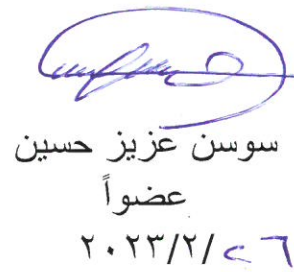 سوسن عزيز حسين
عضواً
٢٠٢٣/٢/٢٦